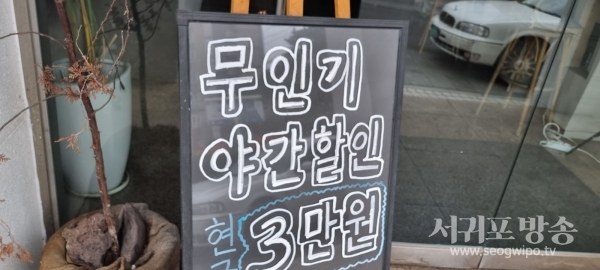 무인기
야간할인
현금 3만원
서귀포방송
www.seogwipo.tv